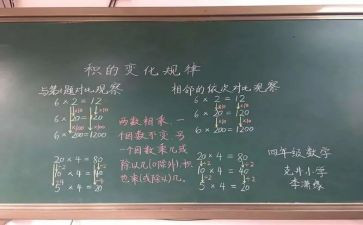 积的变化规律
与第1题对比观察
6 × 2 = 12
6 × 20 = 120
6 × 200 = 1200
20 × 4 = 80
10 × 4 = 40
5 × 4 = 20
两数相乘，一
个因数不变，另
一个因数乘几或
除以几(0除外)，积
也乘(或除以)几。
相邻的依次对比观察
6 × 2 = 12
×10 ×10
6 × 20 = 120
×10 ×10
6 × 200 = 1200
20 × 4 = 80
÷2 ÷2
10 × 4 = 40
÷2 ÷2
5 × 4 = 20
四年级数学
小学